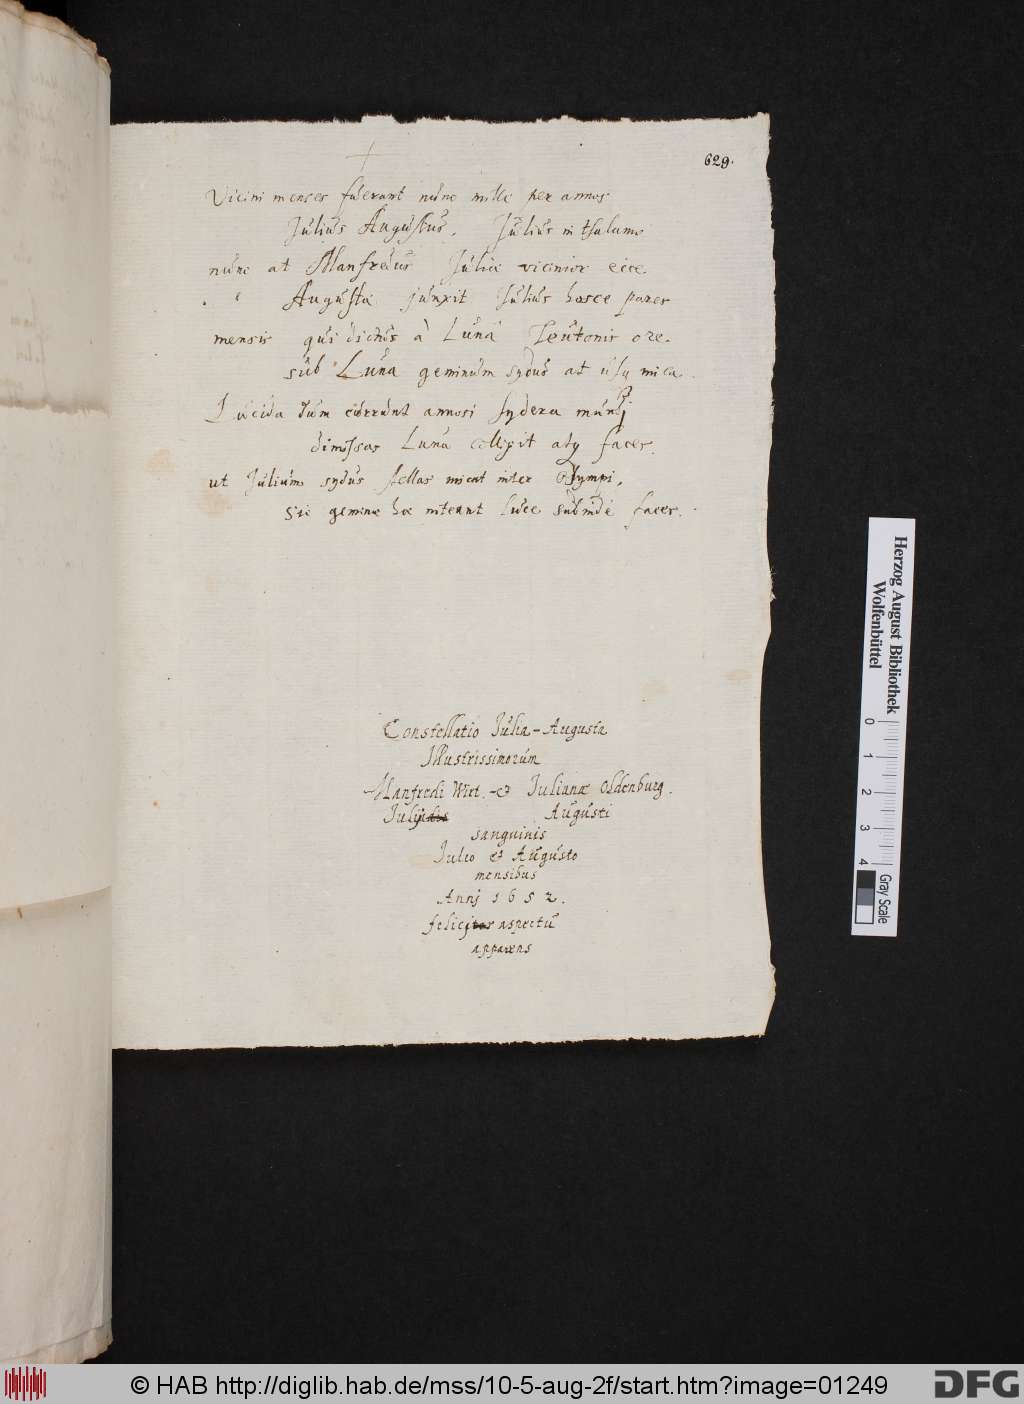 629.
Vicini menses fuerunt nunc mille per annos
Julius Augustus. Julius in thalamo
nunc at Manfredus Juliæ vicinior ecce
Augusta junxit Julius hosce pares
mensis qui dictus à Luna Teutonis ore.
sub Luna geminum sydus at usq mica.
Lucida dum currunt annosi sydera mundj
dimissas Luna colligit atq faces.
ut Julium sydus stellas micat inter Olympi,
Sic geminæ hæ niteant luce subinde faces.
Constellatio Julia-Augusta
Illustrissimorum
Manfredi Wirt. & Julianæ Oldenburg.
Julij Augusti
sanguinis
Julio & Augusto
mensibus
Annj 1652.
felicj aspectu
apparens
Herzog August Bibliothek
Wolfenbüttel
0 1 2 3 4
Gray Scale
© HAB http://diglib.hab.de/mss/10-5-aug-2f/start.htm?image=01249
DFG